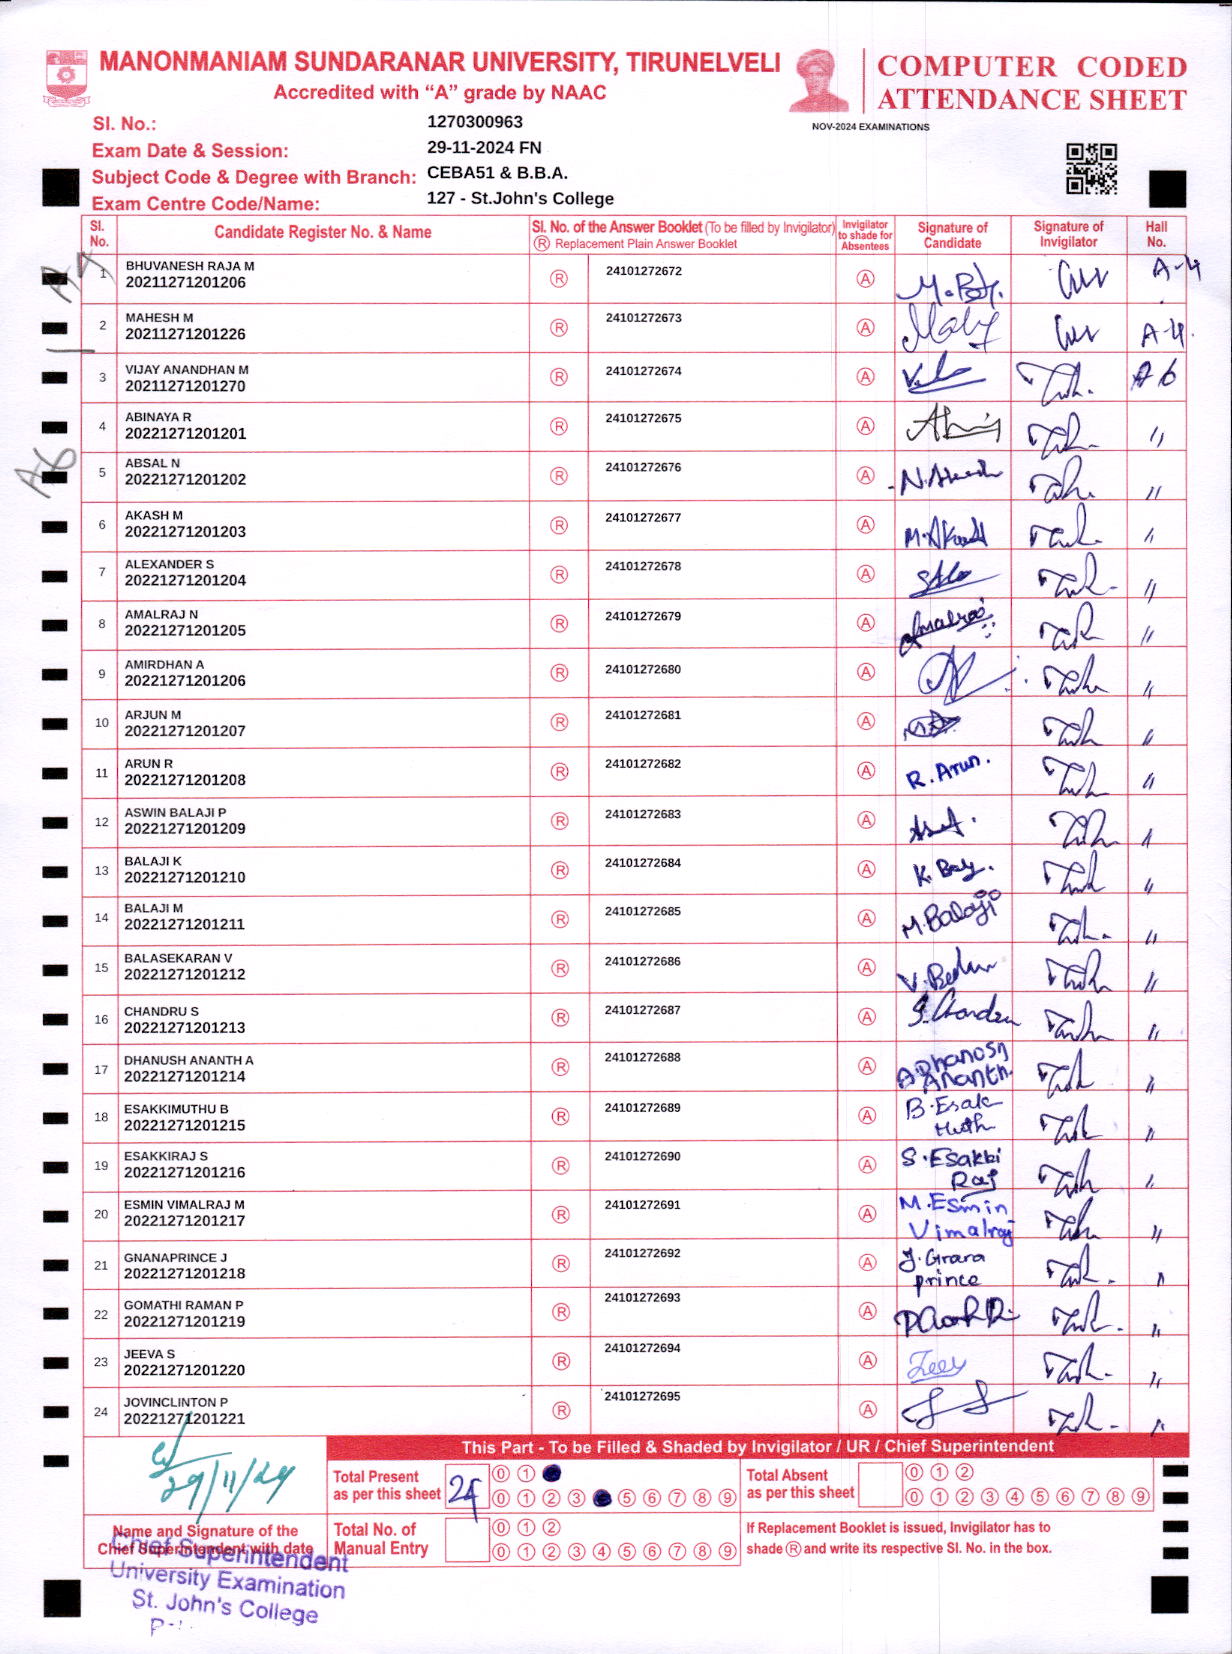 MANONMANIAM SUNDARANAR UNIVERSITY, TIRUNELVELI
Accredited with “A” grade by NAAC
COMPUTER CODED
ATTENDANCE SHEET
NOV-2024 EXAMINATIONS
Sl. No.: 1270300963
Exam Date & Session: 29-11-2024 FN
Subject Code & Degree with Branch: CEBA51 & B.B.A.
Exam Centre Code/Name: 127 - St.John's College
Sl. No. Candidate Register No. & Name Sl. No. of the Answer Booklet (To be filled by Invigilator) Ⓡ Replacement Plain Answer Booklet Invigilator to shade for Absentees Signature of Candidate Signature of Invigilator Hall No.
1 BHUVANESH RAJA M Ⓡ 24101272672 Ⓐ A-4
20211271201206
2 MAHESH M Ⓡ 24101272673 Ⓐ A-4.
20211271201226
3 VIJAY ANANDHAN M Ⓡ 24101272674 Ⓐ A6
20211271201270
4 ABINAYA R Ⓡ 24101272675 Ⓐ "
20221271201201
A6
5 ABSAL N Ⓡ 24101272676 Ⓐ "
20221271201202
6 AKASH M Ⓡ 24101272677 Ⓐ "
20221271201203
7 ALEXANDER S Ⓡ 24101272678 Ⓐ "
20221271201204
8 AMALRAJ N Ⓡ 24101272679 Ⓐ "
20221271201205
9 AMIRDHAN A Ⓡ 24101272680 Ⓐ "
20221271201206
10 ARJUN M Ⓡ 24101272681 Ⓐ "
20221271201207
11 ARUN R Ⓡ 24101272682 Ⓐ R. Arun. "
20221271201208
12 ASWIN BALAJI P Ⓡ 24101272683 Ⓐ "
20221271201209
13 BALAJI K Ⓡ 24101272684 Ⓐ "
20221271201210
14 BALAJI M Ⓡ 24101272685 Ⓐ M.Balaji "
20221271201211
15 BALASEKARAN V Ⓡ 24101272686 Ⓐ "
20221271201212
16 CHANDRU S Ⓡ 24101272687 Ⓐ "
20221271201213
17 DHANUSH ANANTH A Ⓡ 24101272688 Ⓐ A.Dhanosh Ananth. "
20221271201214
18 ESAKKIMUTHU B Ⓡ 24101272689 Ⓐ B.Esak Muth "
20221271201215
19 ESAKKIRAJ S Ⓡ 24101272690 Ⓐ S.Esakki Raj "
20221271201216
20 ESMIN VIMALRAJ M Ⓡ 24101272691 Ⓐ M.Esmin Vimalraj "
20221271201217
21 GNANAPRINCE J Ⓡ 24101272692 Ⓐ J.Gnana prince "
20221271201218
22 GOMATHI RAMAN P Ⓡ 24101272693 Ⓐ "
20221271201219
23 JEEVA S Ⓡ 24101272694 Ⓐ "
20221271201220
24 JOVINCLINTON P Ⓡ 24101272695 Ⓐ "
20221271201221
This Part - To be Filled & Shaded by Invigilator / UR / Chief Superintendent
29/11/24
Total Present
as per this sheet 24
0 1
0 1 2 3 5 6 7 8 9
Total Absent
as per this sheet
0 1 2
0 1 2 3 4 5 6 7 8 9
Name and Signature of the
Chief Superintendent with date
Total No. of
Manual Entry
0 1 2
0 1 2 3 4 5 6 7 8 9
If Replacement Booklet is issued, Invigilator has to
shade Ⓡ and write its respective Sl. No. in the box.
Chief Superintendent
University Examination
St. John's College